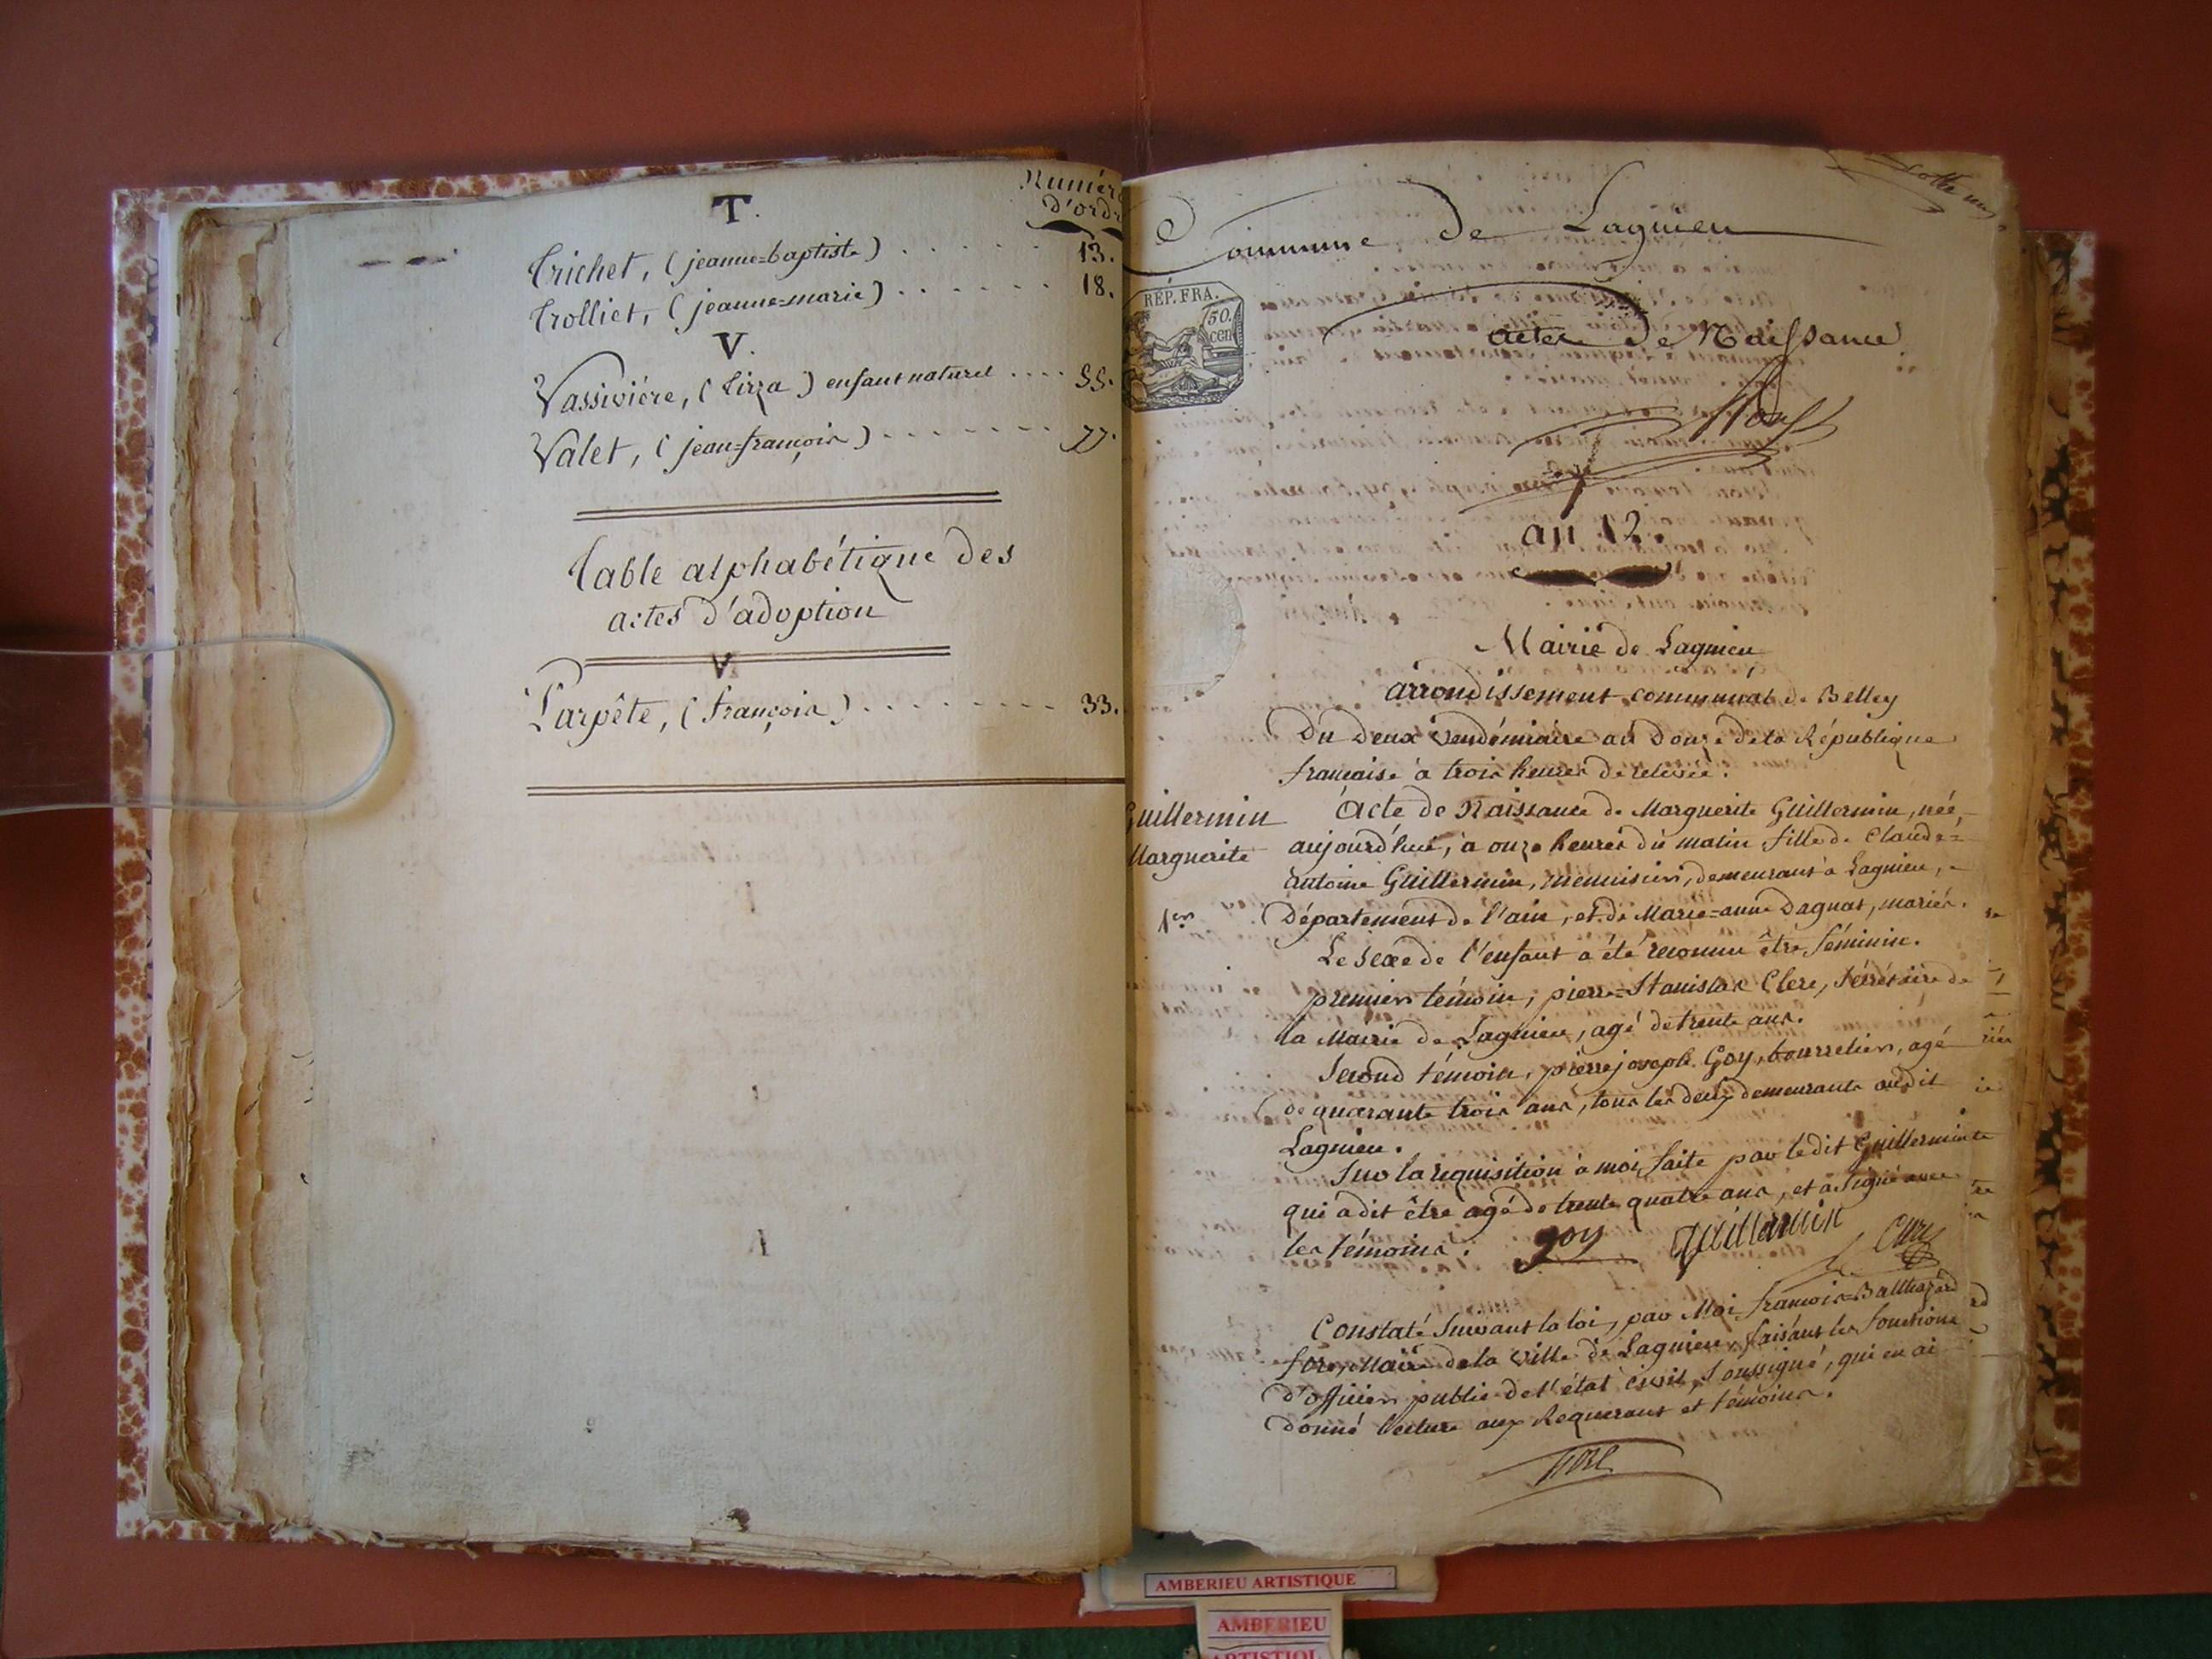 T.
Numéro
d'ordre
Trichet, (jeanne=baptiste) . . . . . . 13.
Trolliet, (jeanne=marie) . . . . . . 18.
V.
Vassivière, (Lizza) enfant naturel . . . . 55.
Valet, (jean=françois) . . . . . . . 77.
Table alphabétique des
actes d'adoption
V
Parpête, (françois) . . . . . . . . 33.
Commune de Lagnieu
RÉP. FRA.
50.
cen
actes de Naissance
an 12.
Mairie de Lagnieu
arrondissement communal de Belley
Du deux vendémiaire an douze de la République
française à trois heures de relevée.
Guillermin
Marguerite
1er
Acte de Naissance de Marguerite Guillermin, née,
aujourd'hui, à onze heures du matin fille de Claude=
antoine Guillermin, menuisier, demeurant à Lagnieu,
Département de l'ain, et de Marie=anne Dagnat, mariés.
Le sexe de l'enfant a été reconnu être féminin.
premier témoin, pierre=Stanislas Clerc, sécrétaire de
la Mairie de Lagnieu, agé de trente ans.
Second témoin, pierre joseph Goy, bourrelier, agé
de quarante trois ans, tous les deux demeurants audit
Lagnieu.
Sur la réquisition à moi faite par ledit Guillermin
qui a dit être agé de trente quatre ans, et a signé avec
les témoins. goy guillermin Clerc
Constaté suivant la loi, par Moi françois=Balthazard
, Maire de la ville de Lagnieu, faisant les fonctions
d'officier public de l'état civil, soussigné, qui en ai
donné lecture aux Requerant et témoins.
AMBERIEU ARTISTIQUE
AMBERIEU
ARTISTIQ